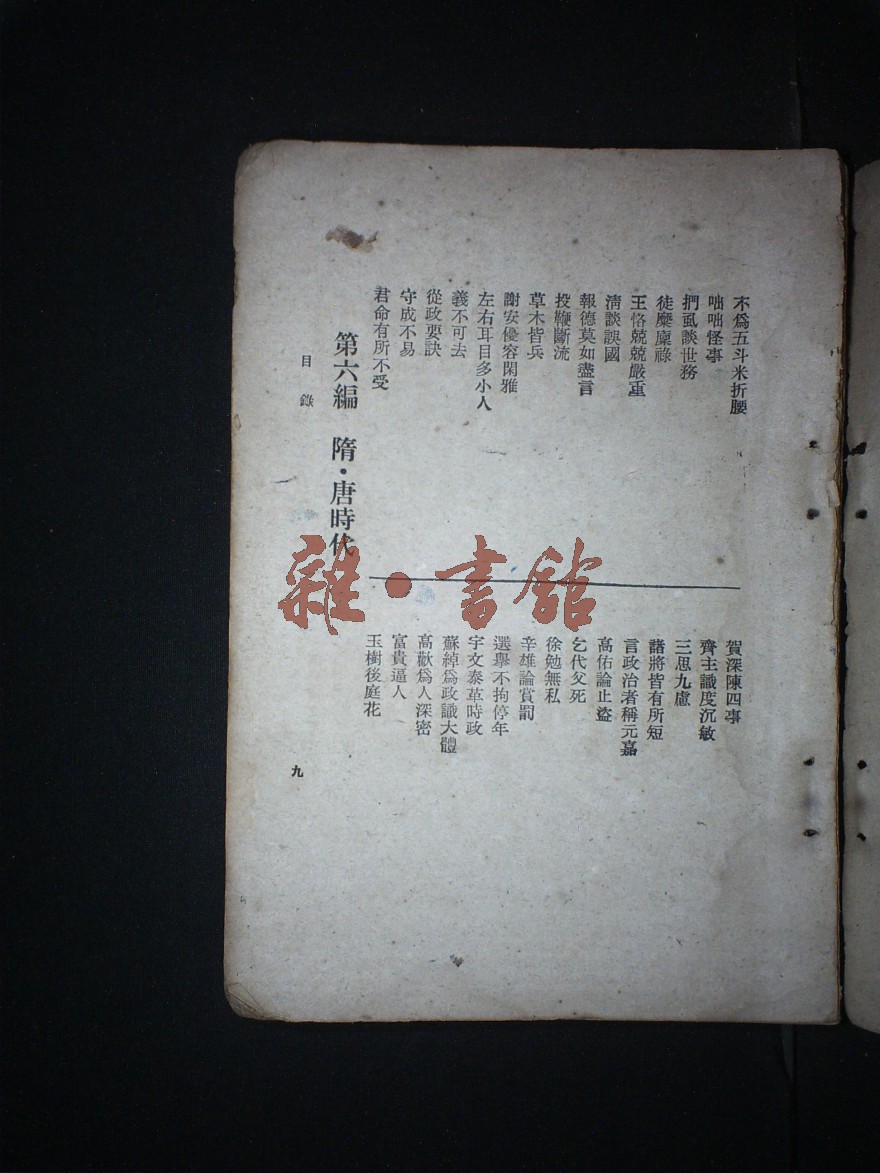 不爲五斗米折腰
咄咄怪事
捫虱談世務
徒縻廩祿
王恪兢兢嚴重
清談誤國
報德莫如盡言
投鞭斷流
草木皆兵
謝安優容閑雅
左右耳目多小人
義不可去
從政要訣
守成不易
君命有所不受
賀深陳四事
齊主識度沉敏
三思九慮
諸將皆有所短
言政治者稱元嘉
高佑論止盜
乞代父死
徐勉無私
辛雄論賞罰
選舉不拘停年
宇文泰革時政
蘇綽爲政識大體
高歡爲人深密
富貴逼人
玉樹後庭花
第六編 隋・唐時代
目錄
九
雜・書館